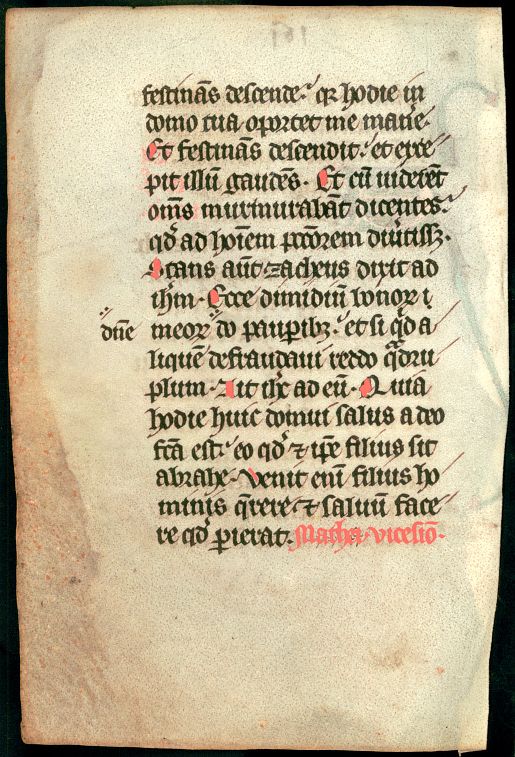 festinās descende. qr hodie in
domo tua oportet me manē.
Et festinās descendit. et exce
pit illū gaudēs. Et cū viderēt
om̄s murmurabāt dicentes.
qd̄ ad hoīem pccōrem diūtiss3.
Stans aūt zacheus dixit ad
ihm̄. Ecce dimidiū bonor i
dn̄e meor do pauꝑib3. et si qd̄ a
liquē defraudavi reddo qdru
plum. Ait ihc ad eū. Quia
hodie huic domui salus a deo
fc̄a est. eo qd̄ ⁊ ip̄e filius sit
abrahe. Venit enī filius ho
minis q̄rere ⁊ saluū face
re qd̄ ꝑierat.